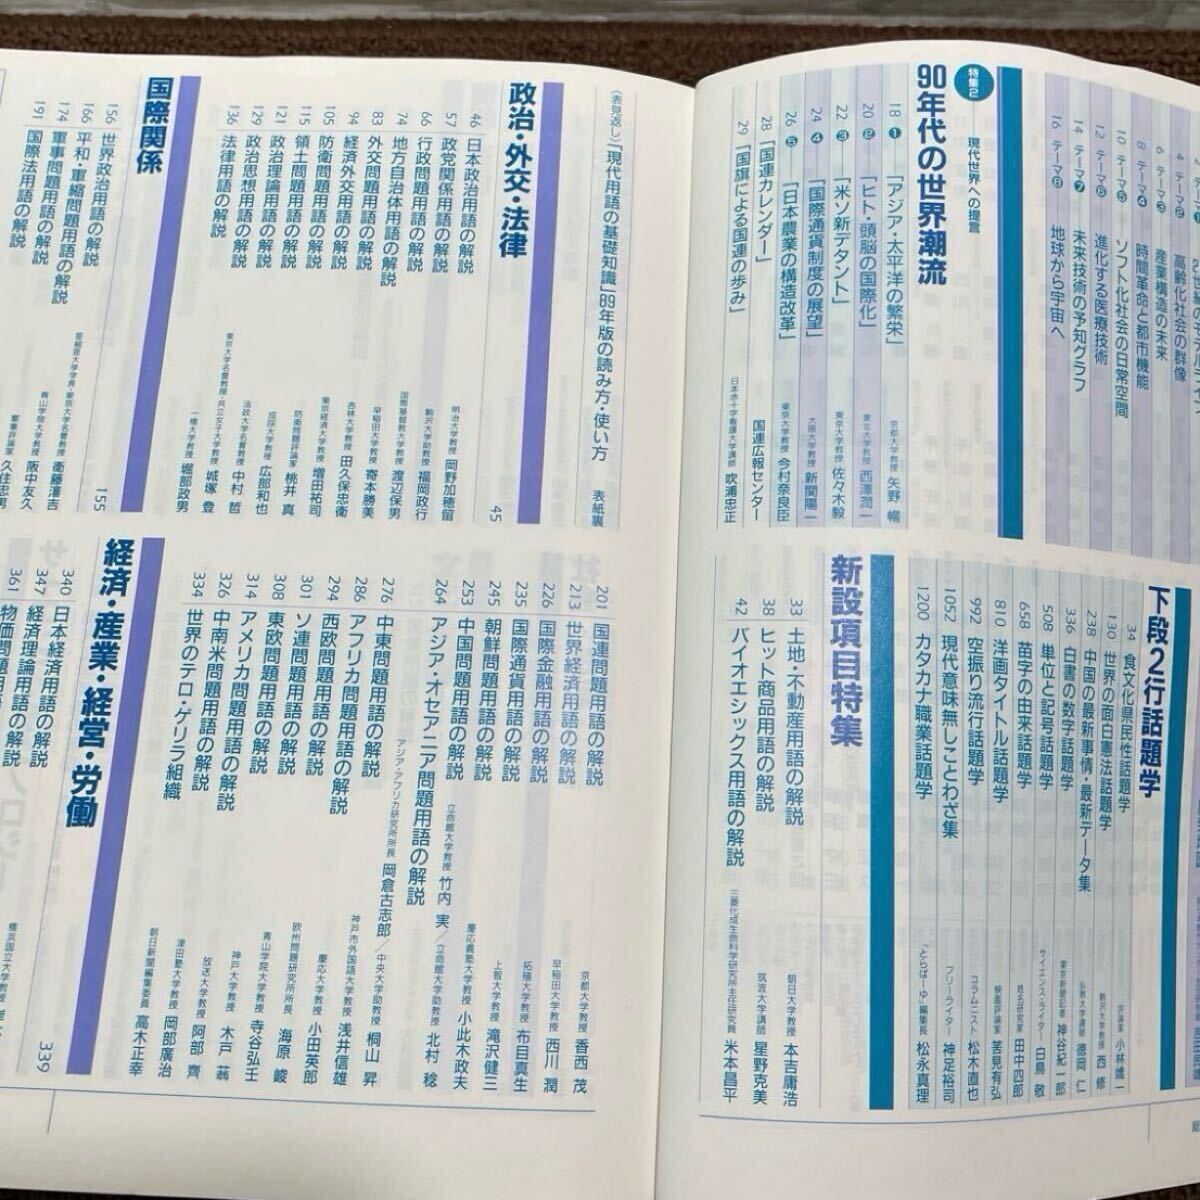 4 テーマ❷ 高齢化社会の群像
6 テーマ❸ 産業構造の未来
8 テーマ❹ 時間革命と都市機能
10 テーマ❺ ソフト化社会の日常空間
12 テーマ❻ 進化する医療技術
14 テーマ❼ 未来技術の予知グラフ
16 テーマ❽ 地球から宇宙へ
特集2 現代世界への提言
90年代の世界潮流
18 ❶「アジア・太平洋の繁栄」 京都大学教授 矢野 暢
20 ❷「ヒト・頭脳の国際化」 東北大学教授 西澤潤一
22 ❸「米ソ新デタント」 東京大学教授 佐々木毅
24 ❹「国際通貨制度の展望」 大阪大学教授 新開陽一
26 ❺「日本農業の構造改革」 東京大学教授 今村奈良臣
28 「国連カレンダー」 国連広報センター
29 「国旗による国連の歩み」 日本赤十字看護大学講師 吹浦忠正
下段2行話題学
34 食文化県民性話題学 評論家 小林嬌一
130 世界の面白憲法話題学 駒沢大学教授 西 修
238 中国の最新事情・最新データ集 仏教大学講師 徳岡 仁
336 白書の数字話題学 東京新聞記者 神谷紀一郎
508 単位と記号話題学 サイエンス・ライター 白鳥 敬
658 苗字の由来話題学 姓名研究家 田中四郎
810 洋画タイトル話題学 映画評論家 筈見有弘
992 空振り流行話題学 コラムニスト 松木直也
1052 現代意味無しことわざ集 フリーライター 神足裕司
1200 カタカナ職業話題学 「とらばーゆ」編集長 松永真理
新設項目特集
33 土地・不動産用語の解説 朝日大学教授 本吉庸浩
38 ヒット商品用語の解説 筑波大学講師 星野克美
42 バイオエシックス用語の解説 三菱化成生命科学研究所主任研究員 米本昌平
(表見返し)「現代用語の基礎知識」89年版の読み方・使い方 表紙裏
政治・外交・法律 45
46 日本政治用語の解説 明治大学教授 岡野加穂留
57 政党関係用語の解説 駒沢大学助教授 福岡政行
66 行政問題用語の解説 国際基督教大学教授 渡辺保男
74 地方自治体用語の解説 早稲田大学教授 寄本勝美
83 外交問題用語の解説 杏林大学教授 田久保忠衛
94 経済外交用語の解説 東京経済大学教授 増田祐司
105 防衛問題用語の解説 防衛問題評論家 桃井 真
115 領土問題用語の解説 成蹊大学教授 広部和也
121 政治理論用語の解説 法政大学名誉教授 中村 哲
129 政治思想用語の解説 東京大学名誉教授・共立女子大学教授 城塚 登
136 法律用語の解説 一橋大学教授 堀部政男
国際関係 155
156 世界政治用語の解説 亜細亜大学学長・東京大学名誉教授 衛藤瀋吉
166 平和・軍縮問題用語の解説 青山学院大学教授 阪中友久
174 軍事問題用語の解説 軍事評論家 久住忠男
191 国際法用語の解説
201 国連問題用語の解説 京都大学教授 香西 茂
213 世界経済用語の解説 早稲田大学教授 西川 潤
226 国際金融用語の解説 拓殖大学教授 布目真生
235 国際通貨用語の解説 上智大学教授 滝沢健三
245 朝鮮問題用語の解説 慶応義塾大学教授 小此木政夫
253 中国問題用語の解説 立命館大学教授 竹内 実/立命館大学助教授 北村 稔
264 アジア・オセアニア問題用語の解説 アジア・アフリカ研究所所長 岡倉古志郎/中央大学助教授 桐山 昇
276 中東問題用語の解説 神戸市外国語大学教授 浅井信雄
286 アフリカ問題用語の解説 慶応大学教授 小田英郎
294 西欧問題用語の解説 欧州問題研究所所長 海原 峻
301 ソ連問題用語の解説 青山学院大学教授 寺谷弘壬
308 東欧問題用語の解説 神戸大学教授 木戸 蓊
314 アメリカ問題用語の解説 放送大学教授 阿部 齊
326 中南米問題用語の解説 津田塾大学教授 岡部廣治
334 世界のテロ・ゲリラ組織 朝日新聞編集委員 高木正幸
経済・産業・経営・労働 339
340 日本経済用語の解説 横浜国立大学教授
347 経済理論用語の解説
361 物価問題用語の解説